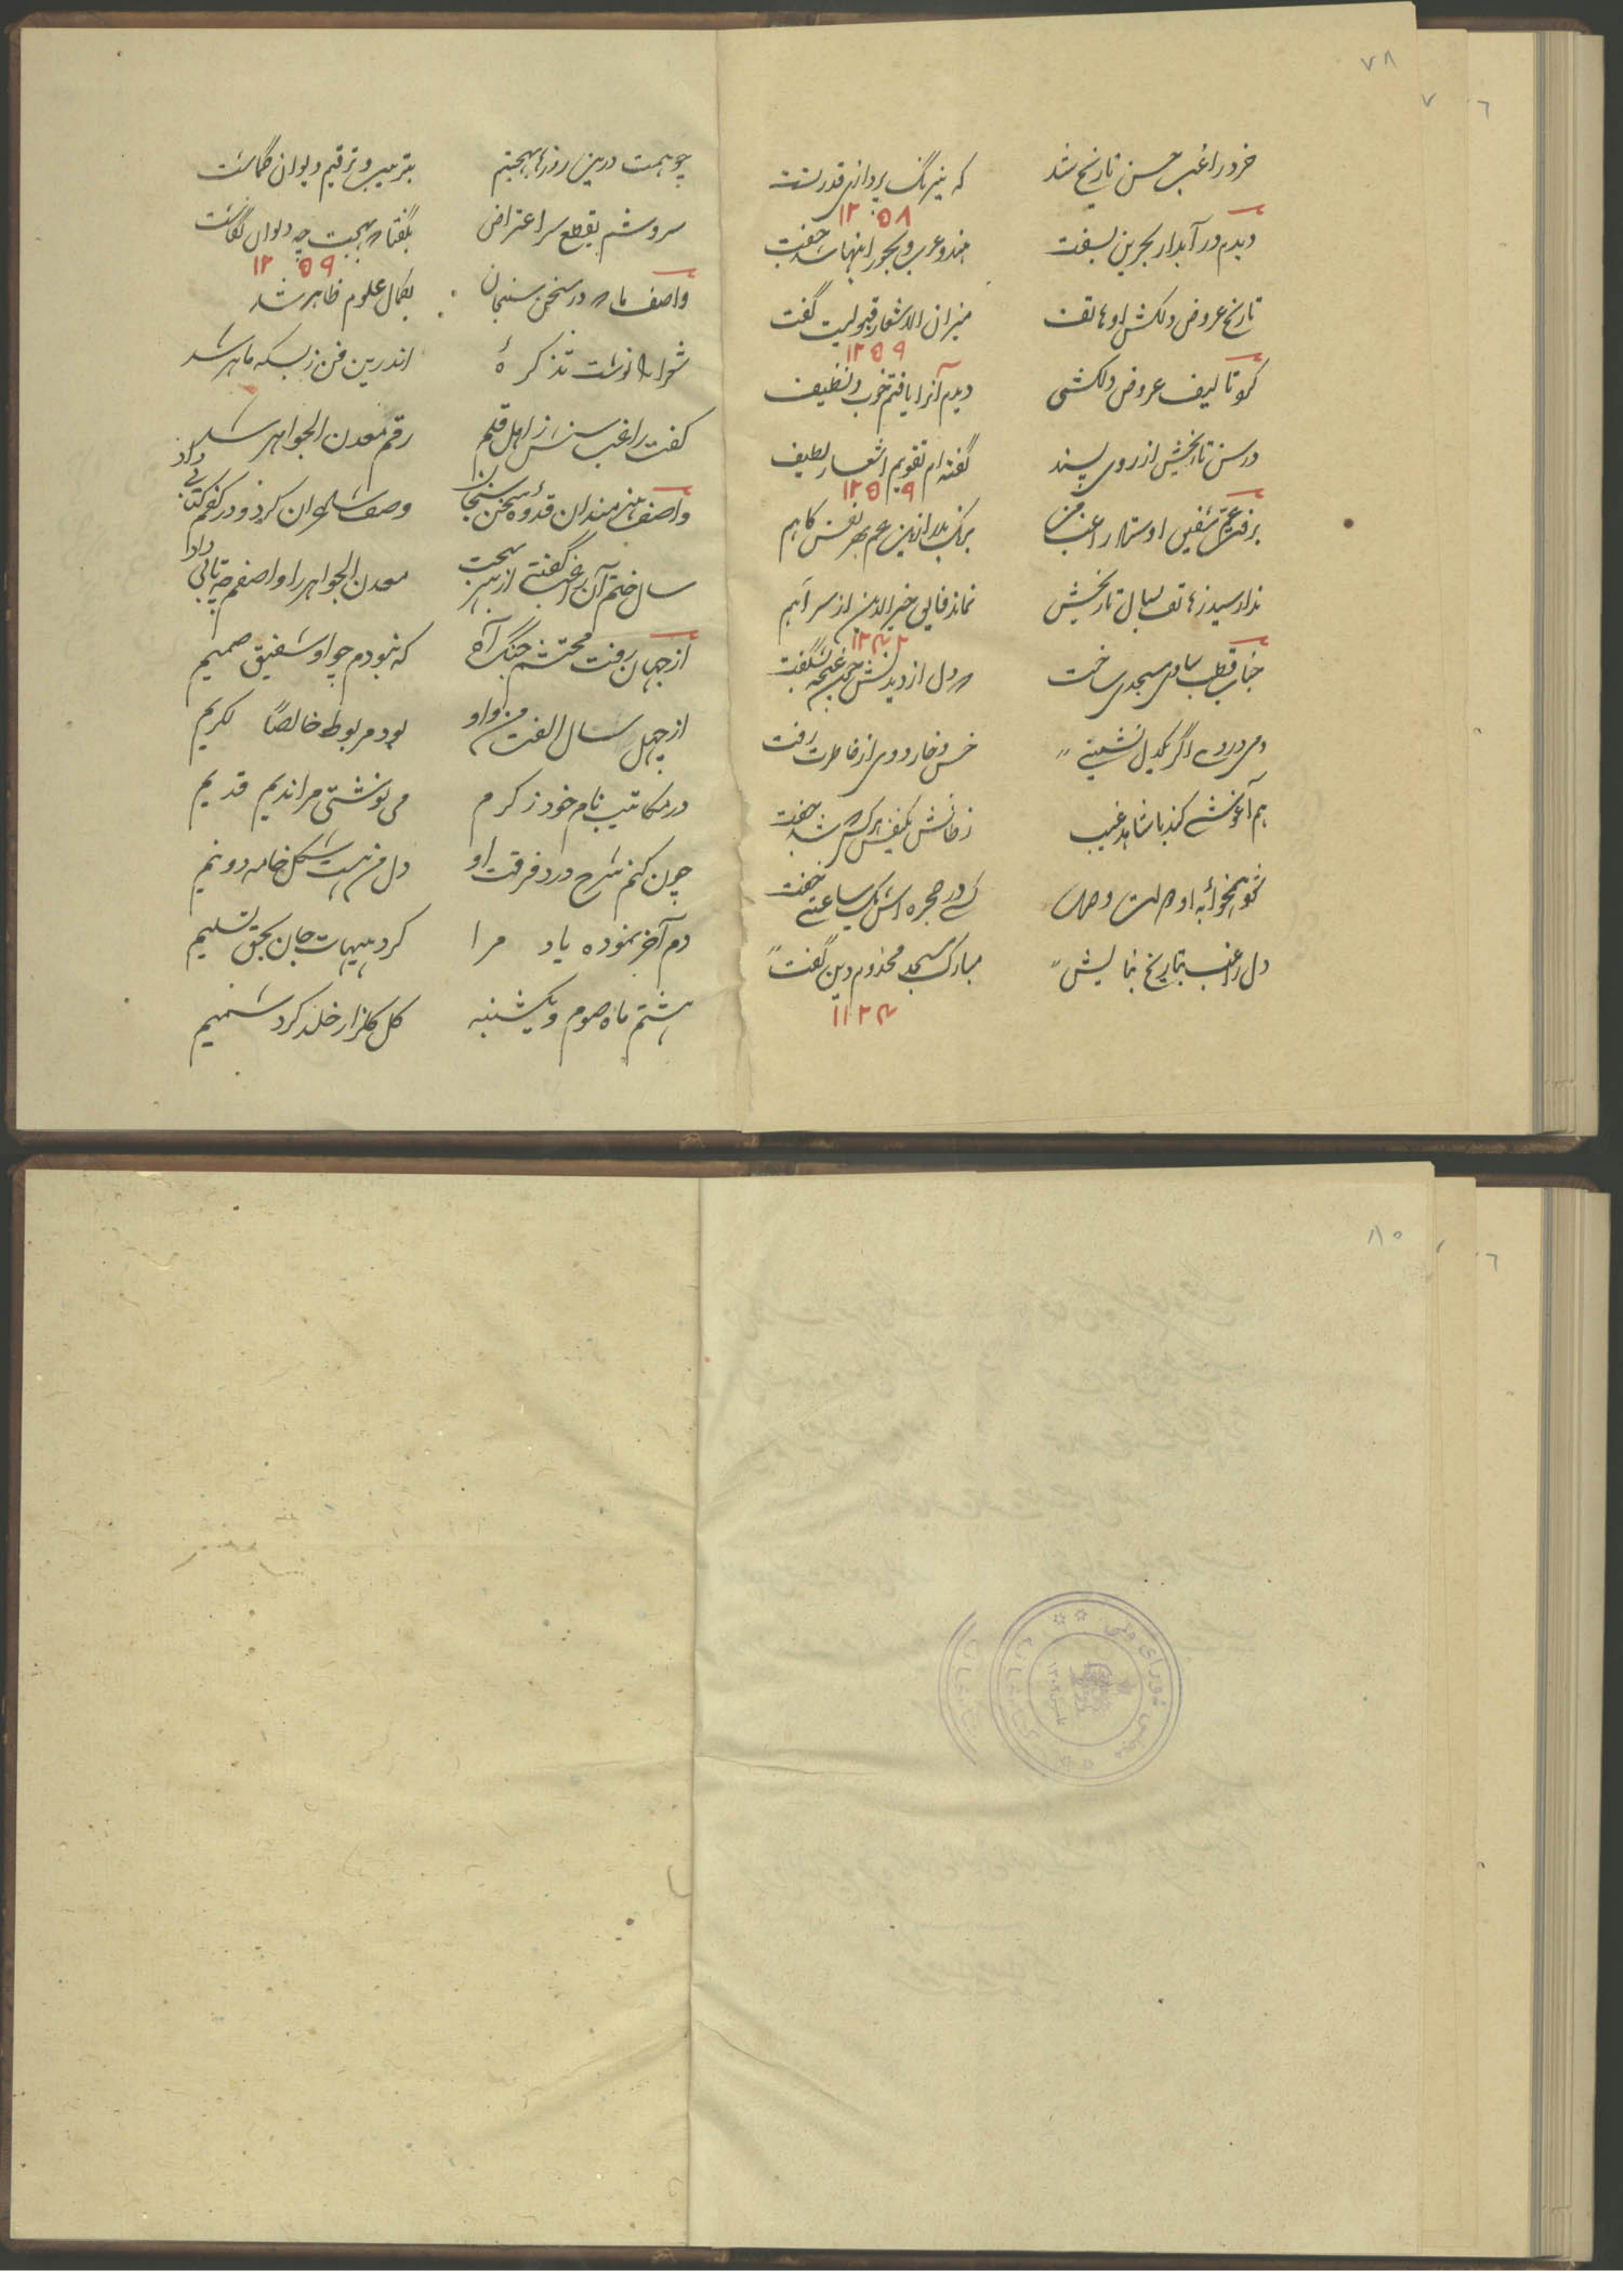 ۷۸
خرد راغب حسن تاریخ شد که نیرنگ پردازی قدرتست
۱۲۵۸
دیدم در آبدار بحرین بسفت هند و عرب و بحور اینها شد جفت
تاریخ عروض دلکش او هاتف میزان الاشعار قبولیت گفت
۱۲۵۹
کو تالیف عروض دلکشی دیدم آنرا یافتم خوب و نظیف
در سن تاریخش از روی پسند گفته ام تقویم اشعار لطیف
۱۲۵۹
برفت عم شفیق اوستاد راغب من
ندا رسید ز هاتف بسال تاریخش نماند فایق خیرالدین از سر آهم
جناب قطب مسجدی ساخت دل از دیدنش چون غنچه بشگفت
دمی در وی اگر یکدل نشینی خس و خار دوی از خاطرت رفت
هم آغوشی کند با شاهد غیب
کسی در حجره اش یک ساعتی خفت
دل راغب بتاریخ بنایش مبارک مسجد مخدوم دین گفت
۱۱۲۴
چو همت درین روزها بهجتم بترتیب و ترقیم دیوان گماشت
سروشم بقطع سر اعتراض بگفتا بهجت چه دیوان نگاشت
۱۲۵۹
واصف ما در سخن سنجان بکمال علوم ظاهر شد
شعرا نوشت تذکرهٔ اندرین فن ز بسکه ماهر شد
گفت راغب سنش ز اهل قلم رقم معدن الجواهر شد
واصف هنرمندان قدوهٔ سخن سنجان وصف شاعران کرد و در کفم کتابی داد
سال ختم آن راغب گفتی از سر بهجت معدن الجواهر را واصفم چه تابی داد
از جهان رفت محتشم جنگ آه که نبودم چو او شفیق صمیم
از چهل سال الفت من و او بود مربوط خالصاً لکریم
در مکاتیب نام خود ز کرم می نوشتی مرا ندیم قدیم
چون کنم شرح درد فرقت او دل من هست شکل خامه دو نیم
دم آخر نموده یاد مرا کرد هیهات جان بحق تسلیم
هشتم ماه صوم و یکشنبه گل گلزار خلد کرد شمیم
۸۰
مجلس شورای ملی
کتابخانه